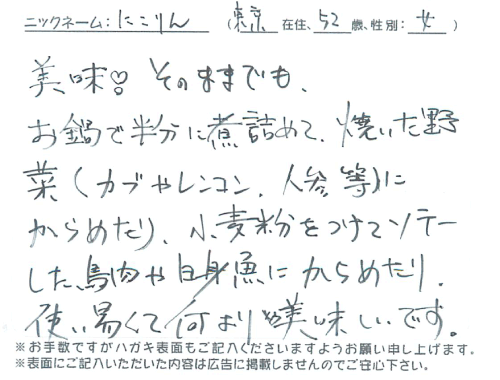 ニックネーム：にこりん （東京 在住、52 歳、性別：女 ）
美味♡！そのままでも、
お鍋で半分に煮詰めて、焼いた野
菜（カブやレンコン、人参等）に
からめたり、小麦粉をつけてソテー
した鳥肉や白身魚にからめたり、
使い易くて何より美味しいです。
※お手数ですがハガキ表面もご記入くださいますようお願い申し上げます。
※表面にご記入いただいた内容は広告に掲載しませんのでご安心下さい。